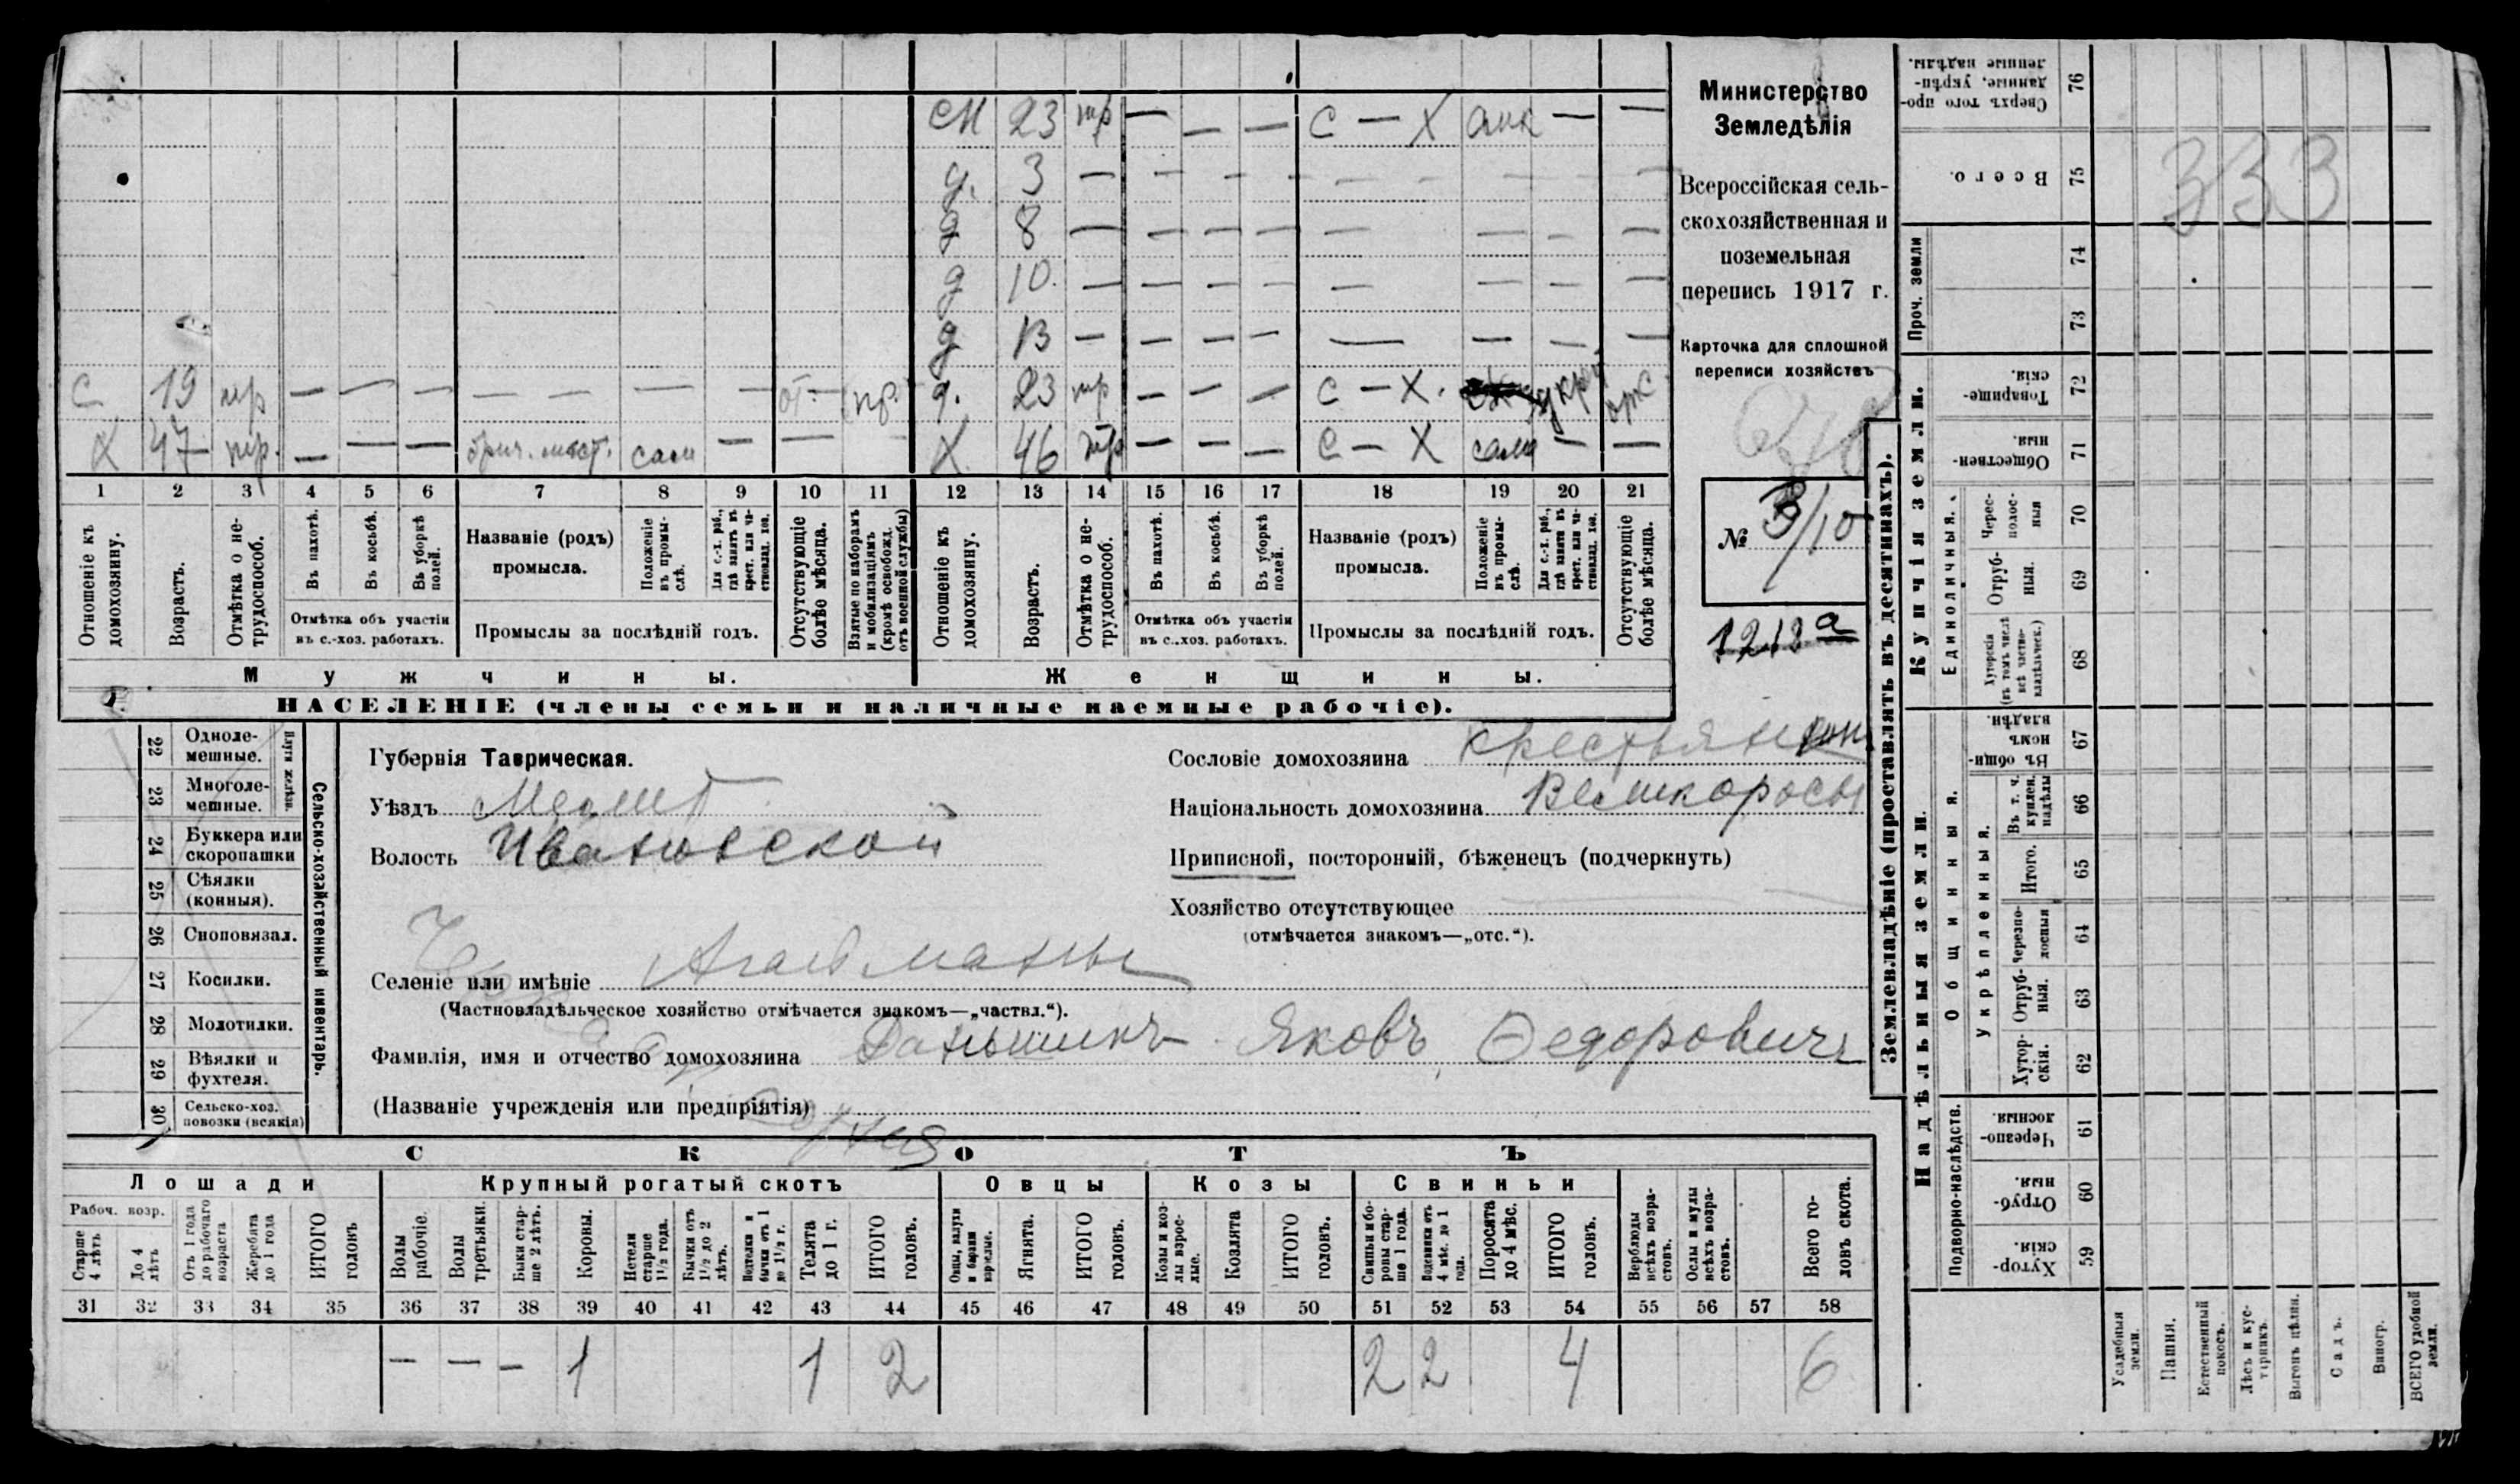 см 23 тр — — — с — х — —
д. 3 — — — — — — — —
д 8 — — — — — — — —
д 10. — — — — — — — —
д 13 — — — — — — — —
с 19 тр — — — — — — от- пр. д. 23 тр — — — с — х.
х 47 тр. — — — сам — — х 46 тр — — — с — х сама — —
1 2 3 4 5 6 7 8 9 10 11 12 13 14 15 16 17 18 19 20 21
Отношеніе къ домохозяину.
Возрастъ.
Отмѣтка о нетрудоспособ.
Въ пахотѣ.
Въ косьбѣ.
Въ уборкѣ полей.
Отмѣтка объ участіи въ с.-хоз. работахъ.
Названіе (родъ) промысла.
Положеніе въ промыслѣ.
Для с.-х. раб., гдѣ занятъ въ крест. или частновлад. хоз.
Промыслы за послѣдній годъ.
Отсутствующіе болѣе мѣсяца.
Взятые по наборамъ и мобилизаціямъ (кромѣ освобожд. отъ военной службы)
Отношеніе къ домохозяину.
Возрастъ.
Отмѣтка о нетрудоспособ.
Въ пахотѣ.
Въ косьбѣ.
Въ уборкѣ полей.
Отмѣтка объ участіи въ с.-хоз. работахъ.
Названіе (родъ) промысла.
Положеніе въ промыслѣ.
Для с.-х. раб., гдѣ занята въ крест. или частновлад. хоз.
Промыслы за послѣдній годъ.
Отсутствующіе болѣе мѣсяца.
Мужчины. Женщины.
НАСЕЛЕНІЕ (члены семьи и наличные наемные рабочіе).
Министерство
Земледѣлія
Всероссійская сель-
скохозяйственная и
поземельная
перепись 1917 г.
Карточка для сплошной
переписи хозяйствъ
№ 3/10
1212 а
22 Одноле-
мешные.
23 Многоле-
мешные.
Плуги желѣзн.
24 Буккера или
скоропашки
25 Сѣялки
(конныя).
26 Сноповязал.
27 Косилки.
28 Молотилки.
29 Вѣялки и
фухтеля.
30 Сельско-хоз.
повозки (всякія)
Сельско-хозяйственный инвентарь.
Губернія Таврическая.
Уѣздъ Мелит
Волость Ивановской
Селеніе или имѣніе Агайманы
(Частновладѣльческое хозяйство отмѣчается знакомъ—„частвл.“).
Фамилія, имя и отчество домохозяина Даньшинъ Яковъ Ѳедоровичъ
(Названіе учрежденія или предпріятія)
Сословіе домохозяина крестьянинъ
Національность домохозяина Великоросы
Приписной, посторонній, бѣженецъ (подчеркнуть)
Хозяйство отсутствующее
(отмѣчается знакомъ—„отс.“).
СКОТЪ
Лошади Крупный рогатый скотъ Овцы Козы Свиньи
Рабоч. возр.
Старше 4 лѣтъ
До 4 лѣтъ
Отъ 1 года до рабочаго возраста
Жеребята до 1 года
ИТОГО головъ
Волы рабочіе.
Волы третьяки.
Быки старше 2 лѣтъ.
Коровы.
Нетели старше 1½ года.
Бычки отъ 1½ до 2 лѣтъ.
Подтелки и бычки отъ 1 до 1½ г.
Телята до 1 г.
ИТОГО головъ.
Овцы, валухи и бараны взрослые.
Ягнята.
ИТОГО головъ.
Козы и козлы взрослые.
Козлята
ИТОГО головъ.
Свиньи и боровы старше 1 года.
Подсвинки отъ 4 мѣс. до 1 года.
Поросята до 4 мѣс.
ИТОГО головъ.
Верблюды всѣхъ возрастовъ.
Ослы и мулы всѣхъ возрастовъ.
Всего головъ скота.
31 32 33 34 35 36 37 38 39 40 41 42 43 44 45 46 47 48 49 50 51 52 53 54 55 56 57 58
— — — 1 1 2 2 2 4 6
Землевладѣніе (проставлять въ десятинахъ).
Надѣльныя земли. Купчія земли. Проч. земли
Подворно-наслѣдств.
Общинныя.
Укрѣпленныя.
Единоличныя.
Хуторскія. 59
Отрубныя. 60
Черезполосныя. 61
Хуторскія. 62
Отрубныя. 63
Черезполосныя 64
Итого. 65
Въ т. ч. куплен. надѣлы 66
Въ общинномъ владѣн. 67
Хуторскія (въ томъ числѣ всѣ частновладѣльческ.) 68
Отрубныя. 69
Чересполосныя 70
Общественныя. 71
Товарищескія. 72
73
74
Всего. 75
Сверхъ того проданные, укрѣпленные надѣлы. 76
333
Усадебныя земли.
Пашня.
Естественный покосъ.
Лѣсъ и кустарникъ.
Выгонъ цѣлин.
Садъ.
Виногр.
ВСЕГО удобной земли.